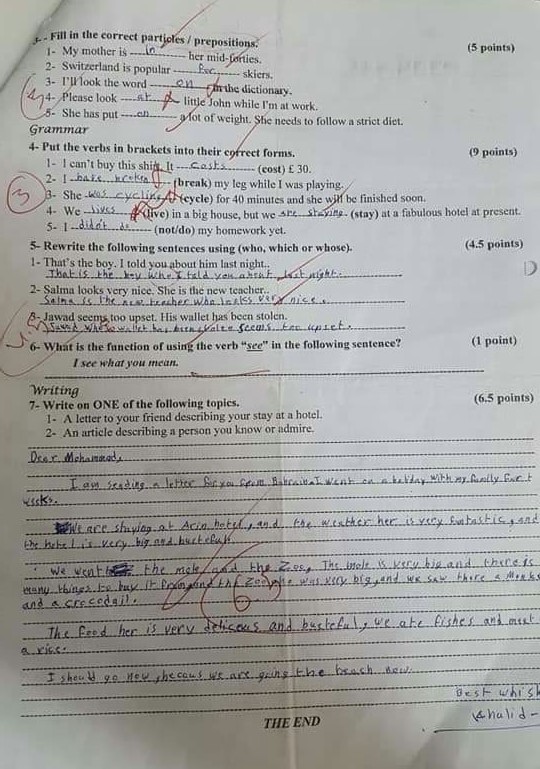 3- Fill in the correct particles / prepositions. (5 points)
1- My mother is in her mid-forties.
2- Switzerland is popular for skiers.
3- I'll look the word on in the dictionary.
4- Please look at little John while I'm at work.
5- She has put on a lot of weight. She needs to follow a strict diet.
4
Grammar
4- Put the verbs in brackets into their correct forms. (9 points)
1- I can't buy this shirt. It costs (cost) £ 30.
2- I have broken (break) my leg while I was playing.
3- She was cycling (cycle) for 40 minutes and she will be finished soon.
3
4- We lives (live) in a big house, but we are staying (stay) at a fabulous hotel at present.
5- I didn't do (not/do) my homework yet.
5- Rewrite the following sentences using (who, which or whose). (4.5 points)
1- That's the boy. I told you about him last night..
That is the boy who I told you about last night.
2- Salma looks very nice. She is the new teacher..
Salma is the new teacher who looks very nice.
3- Jawad seems too upset. His wallet has been stolen.
Jawad whose wallet has been stolen seems too upset.
6- What is the function of using the verb "see" in the following sentence? (1 point)
I see what you mean.
Writing
7- Write on ONE of the following topics. (6.5 points)
1- A letter to your friend describing your stay at a hotel.
2- An article describing a person you know or admire.
Dear Mohammad,
I am sending a letter for you from Bahrain. I went on a holiday with my family for
weeks.
We are staying at Arin hotel, and the weather her is very funtastic, and
the hotel is very big and busteful.
We went the mole and the Zoo, The mole is very big and there is
many things to buy it from, and the Zoo was very big, and we saw there a
and a crocodail.
6
The food her is very delicous and busteful, we ate fishes and meat
a rice.
I should go now, becaus we are going the beach now.
Best whish
Khalid
THE END